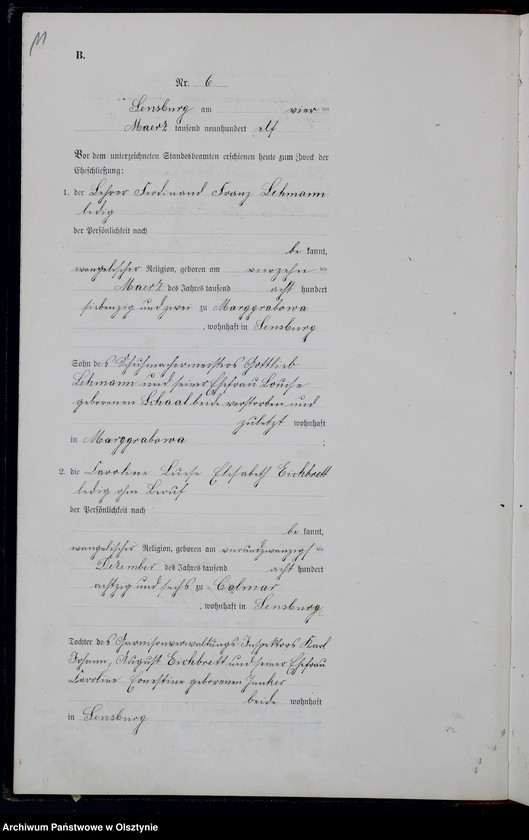 11
B.
Nr. 6
Sensburg am vier ten
Maerz tausend neunhundert elf
Vor dem unterzeichneten Standesbeamten erschienen heute zum Zweck der
Eheschließung:
1. der Lehrer Ferdinand Franz Lehmann
ledig
der Persönlichkeit nach
be kannt,
evangelischer Religion, geboren am vierzehn ten
Maerz des Jahres tausend acht hundert
siebenzig und zwei zu Marggrabowa
, wohnhaft in Sensburg
Sohn des Schuhmachermeisters Gottlieb
Lehmann und seiner Ehefrau Louise
geborenen Schaal beide verstorben und
zuletzt wohnhaft
in Marggrabowa ;
2. die Caroline Luise Elisabeth Eichbrett
ledig ohne Beruf
der Persönlichkeit nach
be kannt,
evangelischer Religion, geboren am vierundzwanzigs ten
Dezember des Jahres tausend acht hundert
achtzig und sechs zu Colmar
, wohnhaft in Sensburg
Tochter des Garnisonverwaltungs Inspektors Karl
Johann, August Eichbrett und seiner Ehefrau
Caroline Ernestine geborenen Junker
beide wohnhaft
in Sensburg
Archiwum Państwowe w Olsztynie